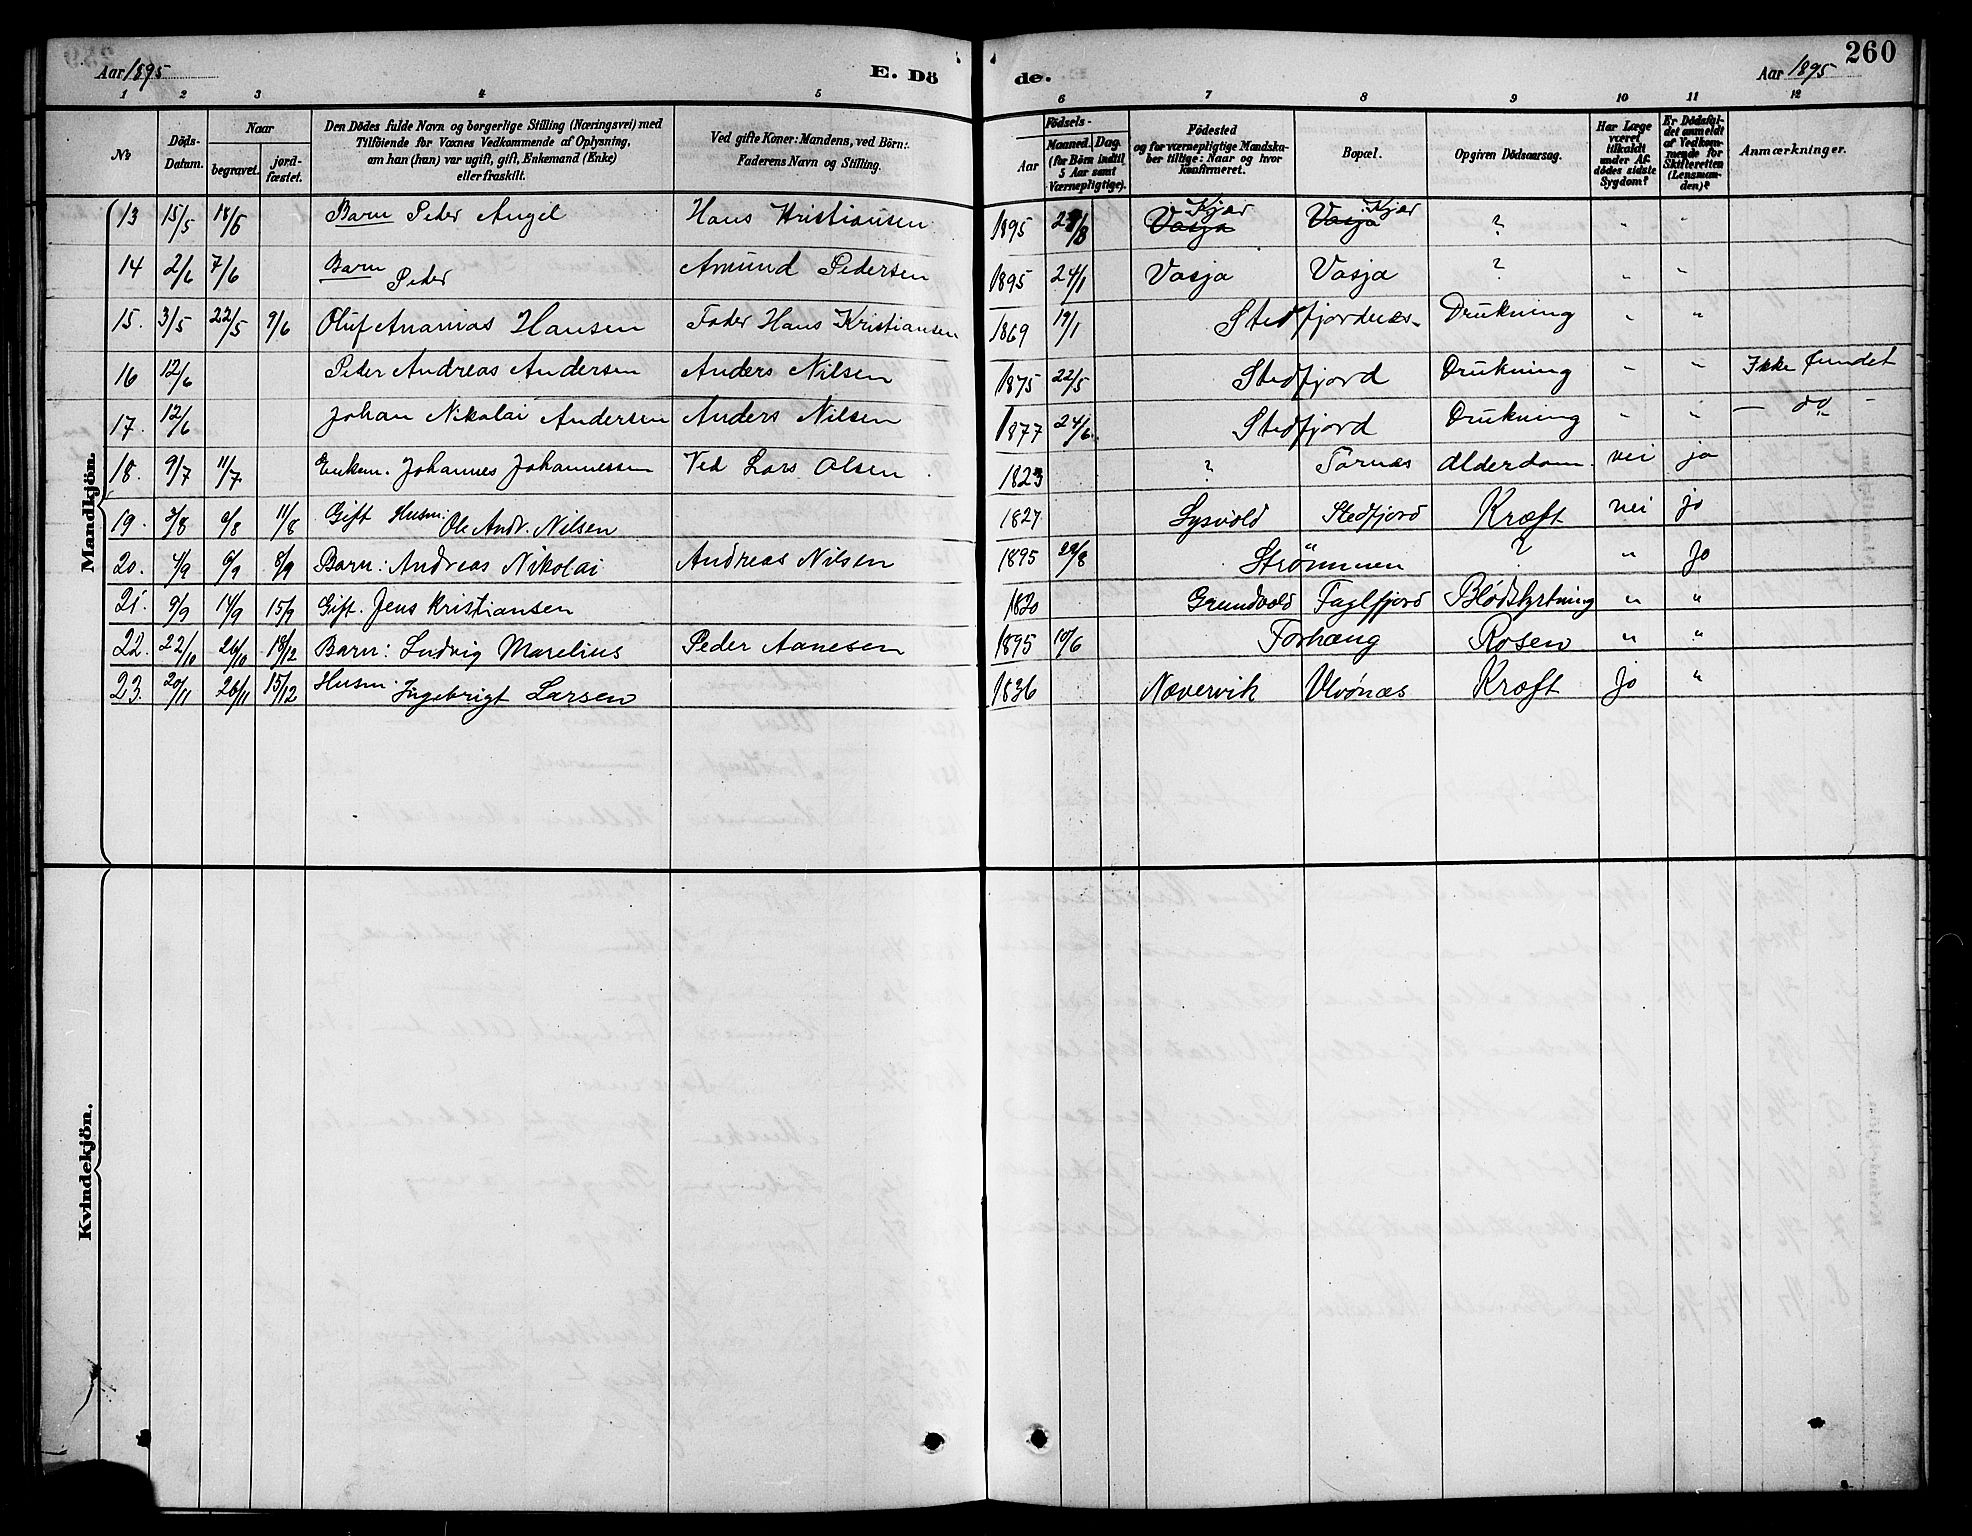 260
Aar 1895 E. Dö de. Aar 1895
1 2 3 4 5 6 7 8 9 10 11 12
No
Döds-Datum.
Naar begravet. jordfæstet.
Den Dödes fulde Navn og borgerlige Stilling (Næringsvei) med
Tilföiende for Voxnes Vedkommende af Oplysning,
om han (hun) var ugift, gift, Enkemand (Enke)
eller fraskilt.
Ved gifte Koner: Mandens, ved Börn:
Faderens Navn og Stilling.
Födsels-
Aar Maaned. Dag.
(for Börn indtil
5 Aar samt
Værnepligtige).
Födested
og for værnepligtige Mandska-
ber tillige: Naar og hvor
konfirmeret.
Bopæl.
Opgiven Dödsaarsag.
Har Læge
været
tilkaldt
under Af-
dödes sidste
Sygdom?
Er Dödsfal-
det anmeldt
af Vedkom-
mende for
Skifteretten
(Lensman-
den)?
Anmærkninger.
Mandkjön.
13 15/5 18/5 Barn Peder Angel Hans Kristiansen 1895 Vasja Kjær Vasja Kjær ? " "
14 2/6 7/6 Barn Peder Amund Pedersen 1895 24/1 Vasja Vasja ? " "
15. 3/5 22/5 9/6 Oluf Ananias Hansen Fader Hans Kristiansen 1869 19/1 Stedfjordnæs Drukning " "
16 12/6 Peter Andreas Andersen Anders Nilsen 1875 22/5 Stedfjord Drukning " " Ikke fundet
17. 12/6 Johan Nikolai Andersen Anders Nilsen 1877 24/6 Stedfjord Drukning " " — do —
18. 9/7 11/7 Enkem. Johannes Johannessen Ved Lars Olsen 1823 ? Tornæs Alderdom nei ja
19. 3/8 6/8 11/8 Gift Husm: Ole Andr. Nilsen 1827 Sysvold Stedfjord Kræft nei jo
20. 4/9 6/9 8/9 Barn: Andreas Nikolai Andreas Nilsen 1895 29/8 Strømmen ? " Jo
21. 9/9 14/9 15/9 Gift. Jens Kristiansen 1820 Grundvold Faglfjord Blodstyrtning " "
22. 22/10 26/10 18/12 Barn: Ludvig Marelius Peder Aanesen 1895 10/6 Forhæng Rosen " "
23. 20/11 26/11 15/12 Husm. Ingebrigt Larsen 1836 Nævervik Ulvønæs Kræft Jo "
Kvindekjön.